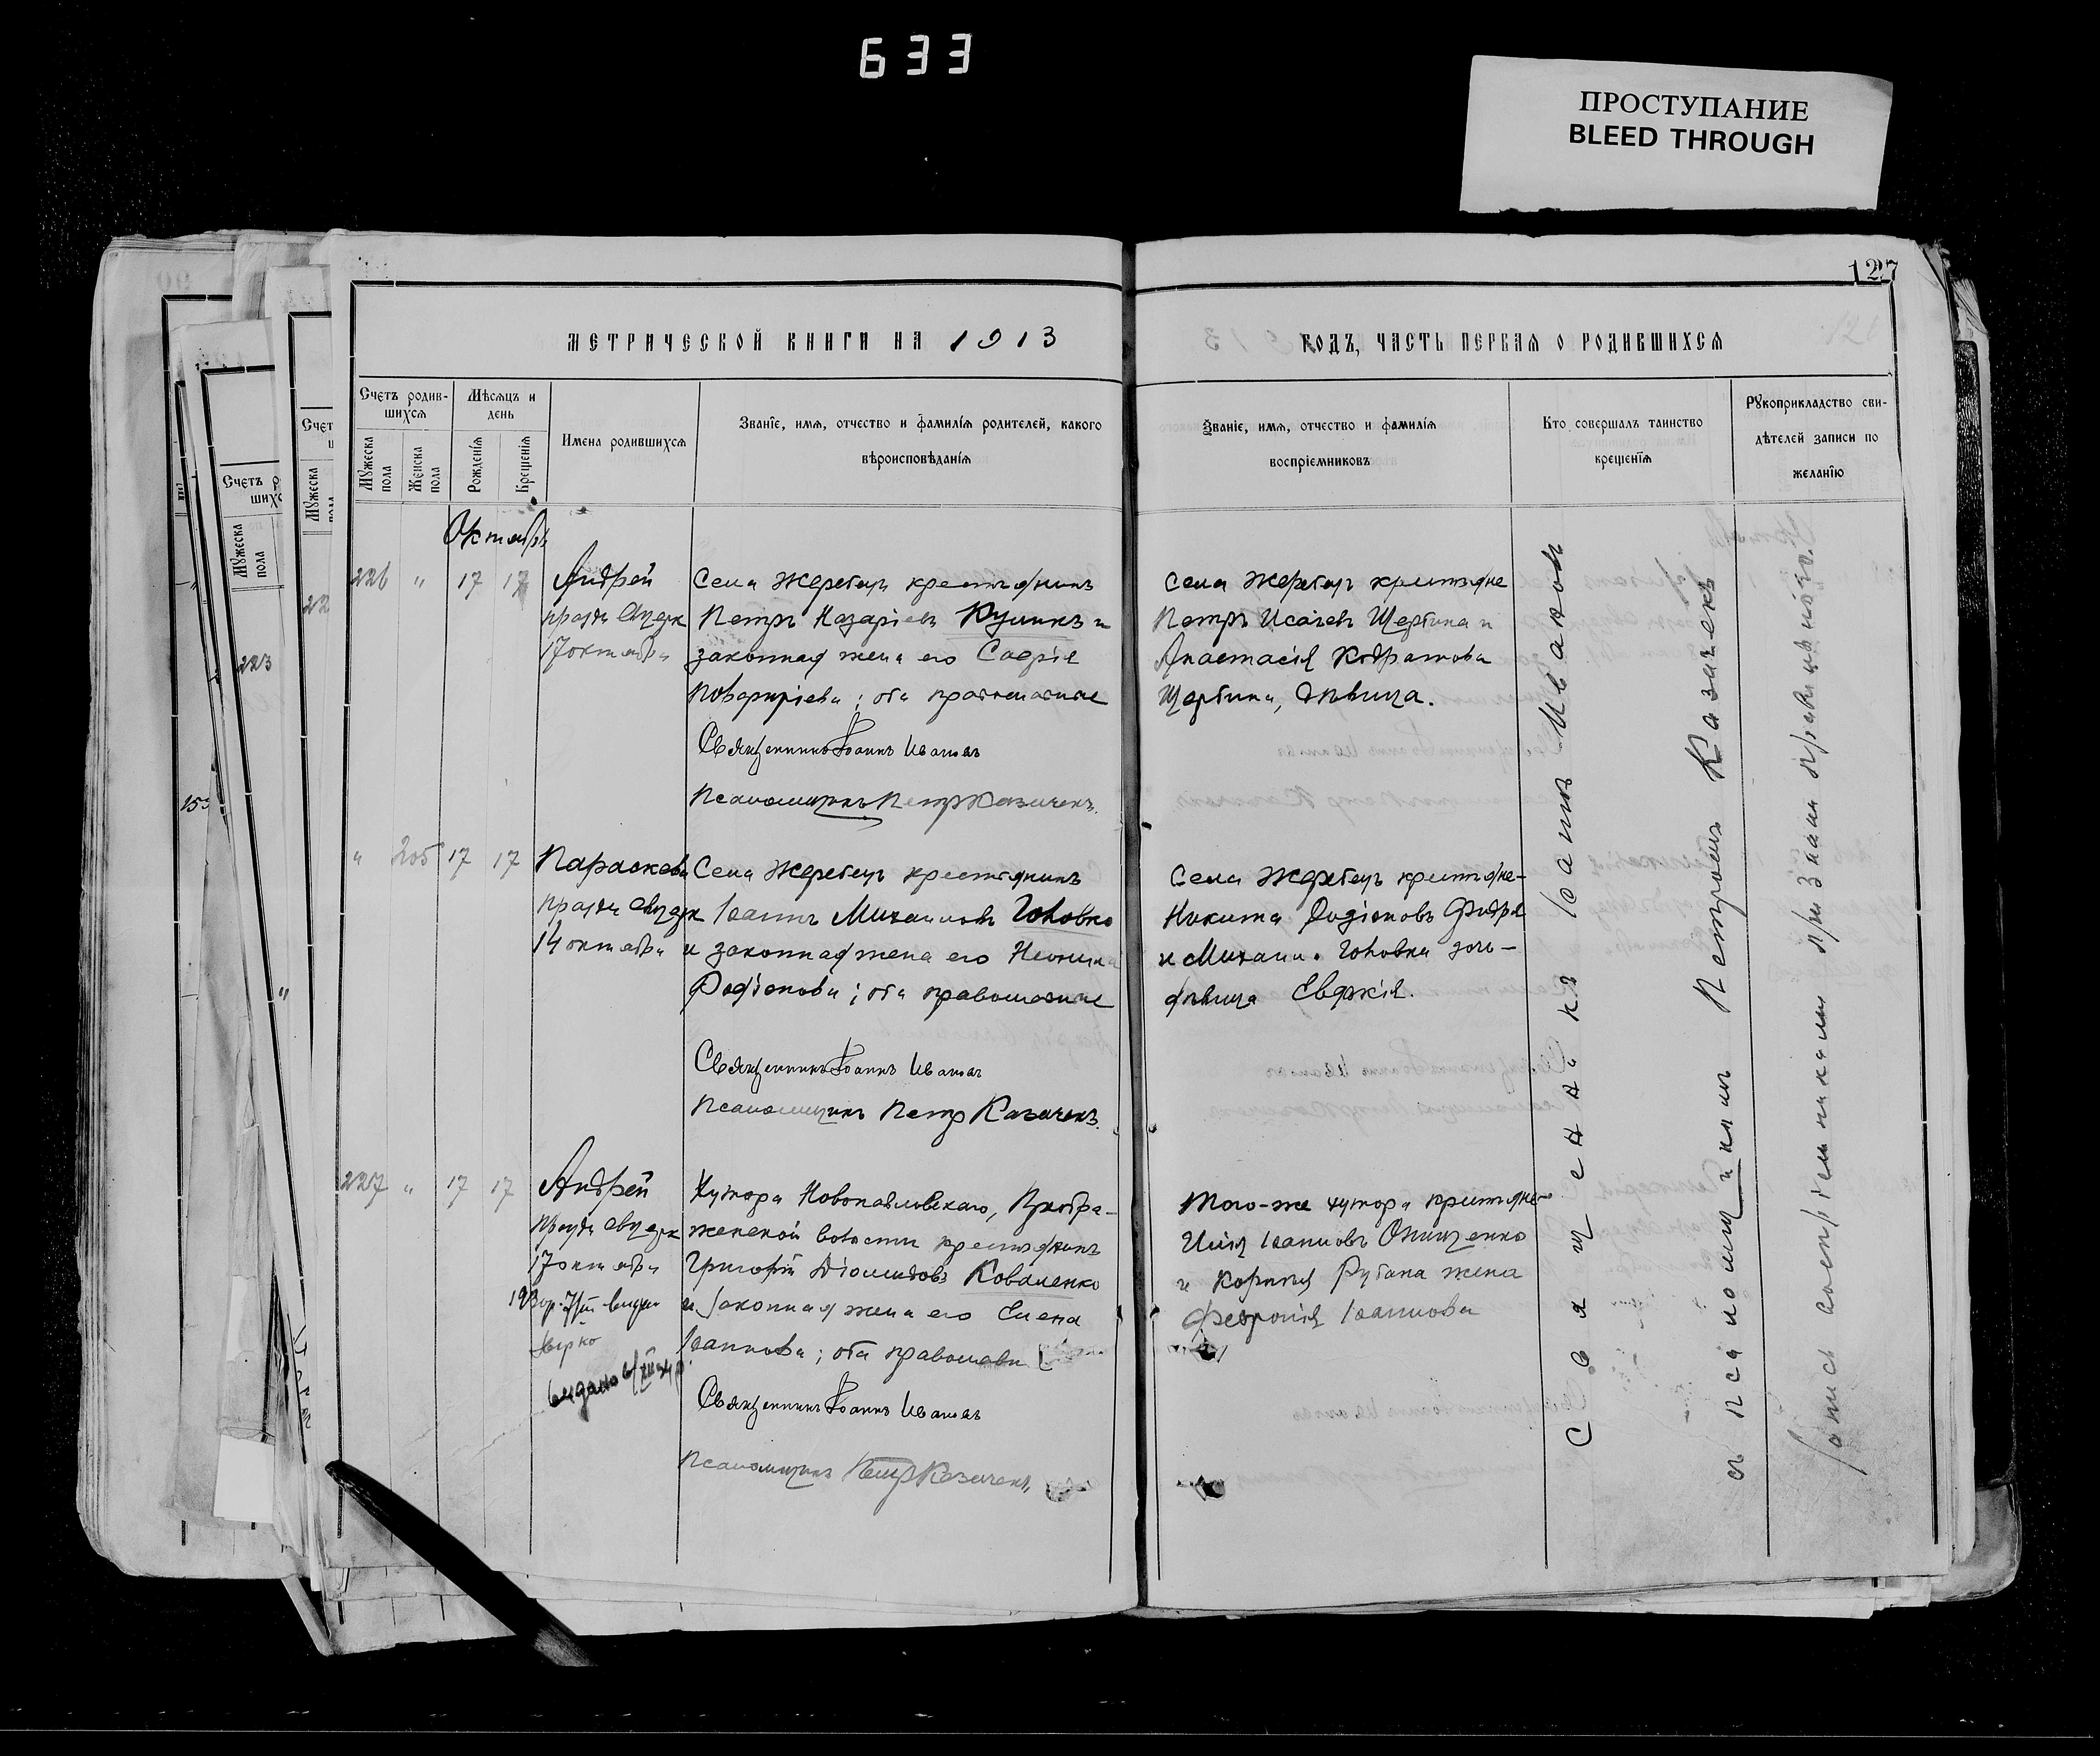 633
ПРОСТУПАНИЕ
BLEED THROUGH
127
МЕТРИЧЕСКОЙ КНИГИ НА 1913
ГОДЪ, ЧАСТЬ ПЕРВАЯ О РОДИВШИХСЯ
Счетъ родив-
шихся
Мужеска пола
Женска пола
Мѣсяцъ и
день
Рожденія
Крещенія
Имена родившихся
Званіе, имя, отчество и фамилія родителей, какого
вѣроисповѣданія
Званіе, имя, отчество и фамилія
воспріемниковъ
Кто совершалъ таинство
крещенія
Рукоприкладство сви-
дѣтелей записи по
желанію
Октябрь
226 " 17 17 Андрей
17 октября
Села Жеребецъ крестьянинъ
Петръ Назаріевъ Куликъ и
законная жена его Софія
Порфиріева; оба православные
Священникъ Іоаннъ Ивановъ
Псаломщикъ Петръ Казачекъ.
Села Жеребецъ крестьяне
Петръ Исаіевъ Щербина и
Анастасія Кодратова
Щербина, дѣвица.
" 205 17 17 Параскева
14 октября
Села Жеребецъ крестьянинъ
Іоаннъ Михаиловъ Головко
и законная жена его Неонила
Родіонова; оба православные
Священникъ Іоаннъ Ивановъ
Псаломщикъ Петръ Казачекъ.
Села Жеребецъ крестьяне-
Никита Родіоновъ
и Михаила Головка дочь-
дѣвица Евдокія.
227 " 17 17 Андрей
17 октября
выдано
Хутора Новопавловскаго, Преобра-
женской волости крестьянинъ
Григорій Діомидовъ Коваленко
и законная жена его Елена
Іоаннова; оба православн
Священникъ Іоаннъ Ивановъ
Псаломщикъ Петръ Казачекъ,
Того-же хутора крестьяне-
Илія Іоанновъ Онищенко
и Корнилія жена
Феврония Іоаннова
Священникъ Іоаннъ Ивановъ
съ псаломщикомъ Петромъ Казачекъ